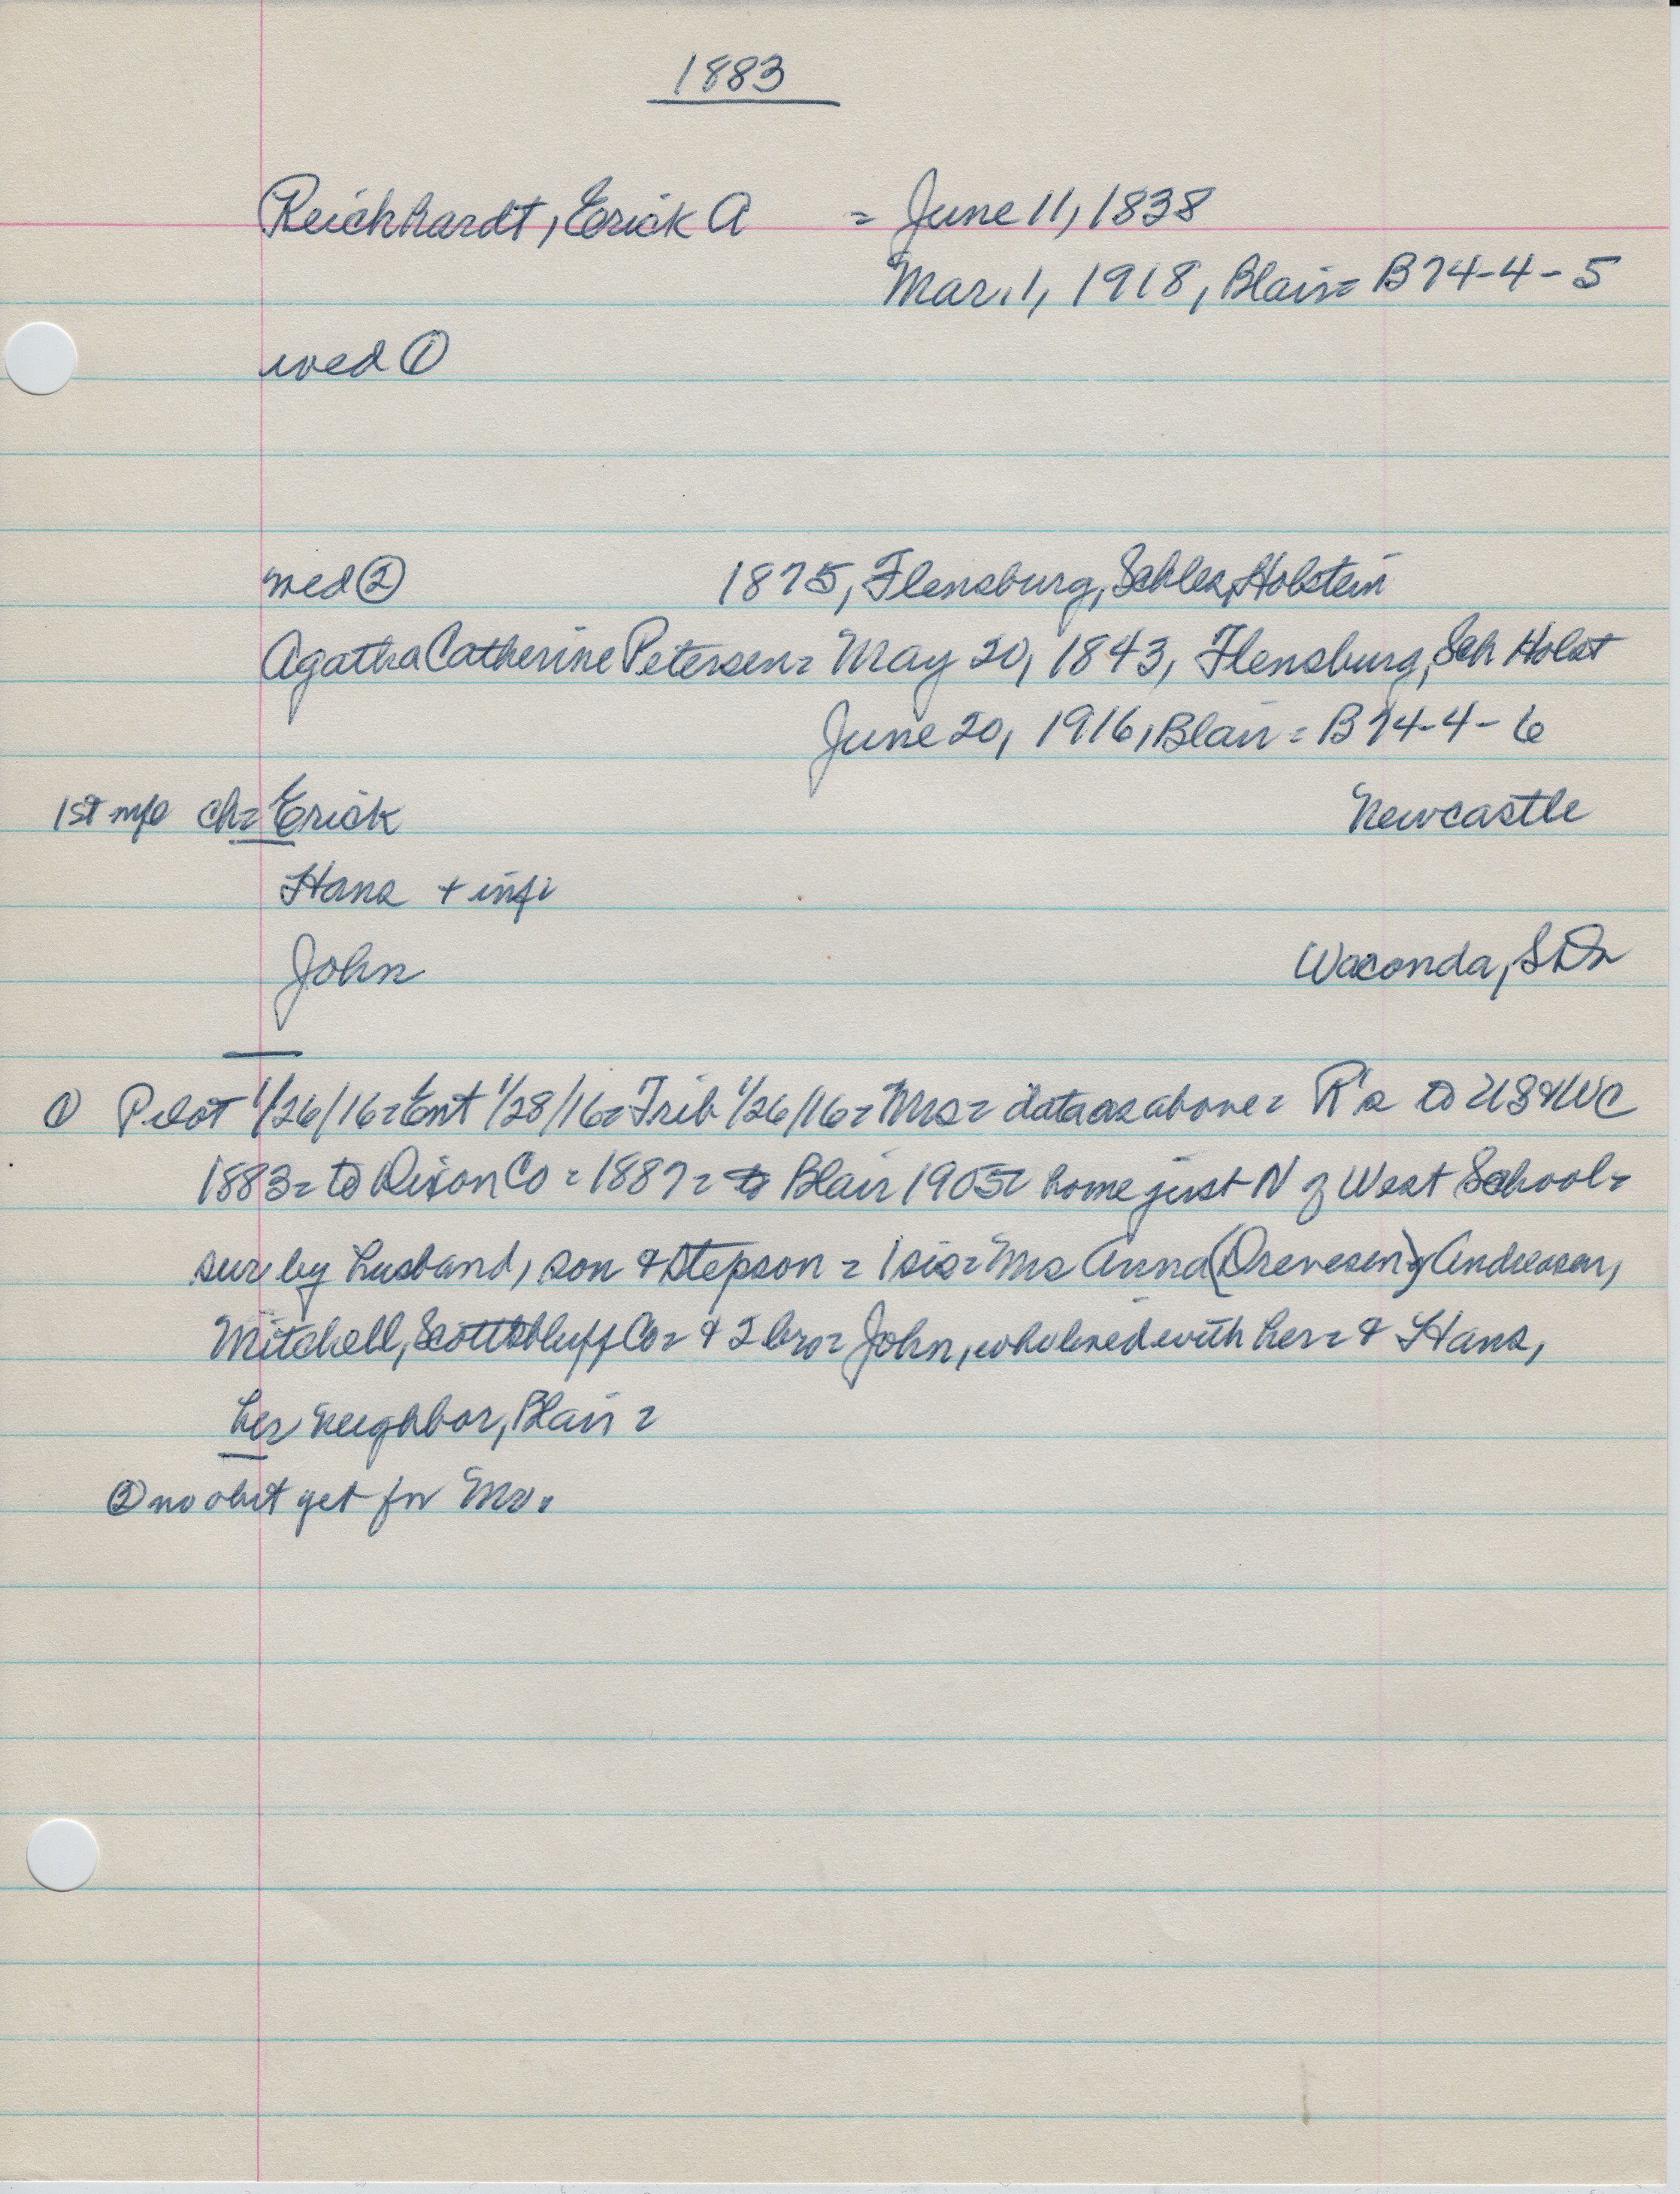 1883
Reichhardt, Erick A = June 11, 1838
Mar. 1, 1918, Blair = B74-4-5
wed ①
wed ② 1875, Flensburg, Schles, Holstein
Agatha Catherine Petersen = May 20, 1843, Flensburg, Sch Holst
June 20, 1916, Blair = B74-4-6
1st ch = Erick Newcastle
Hans + inf
John Waconda, SD
① Pilot 1/26/16 = Ent 1/28/16 = Trib 1/26/16 = Mrs = data as above = R's to US & WC
1883 = to Dixon Co = 1887 = to Blair 1905 = home just N of West School =
sur by husband, son & stepson = 1 sis = Mrs Anna ( ) Andreasen,
Mitchell, Scottsbluff Co = & 2 bro = John, who lived with her = & Hans,
her neighbor, Blair =
② no obit yet for Mr.